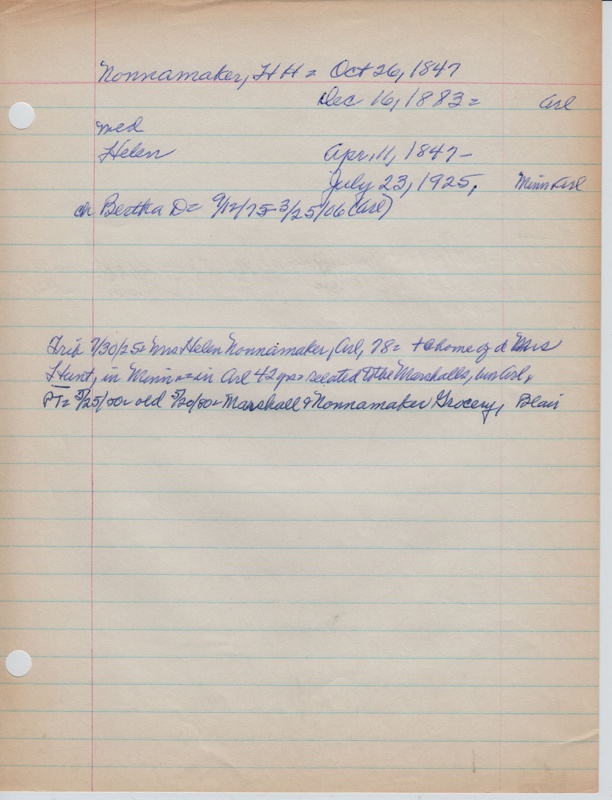 Nonnamaker, HH = Oct 26, 1847
Dec 16, 1883 = Arl
med
Helen Apr. 11, 1847 -
July 23, 1925, Minn Arl
ch Bertha D = 9/12/75 - 3/25/06 (Arl)
Trib 7/30/25 = Mrs Helen Nonnamaker, Arl, 78 = + @ home of d Mrs
Hunt, in Minn = in Arl 42 yrs = related to the Marshalls, bur Arl,
PT = 5/25/80 = old 5/20/80 = Marshall & Nonnamaker Grocery, Blair